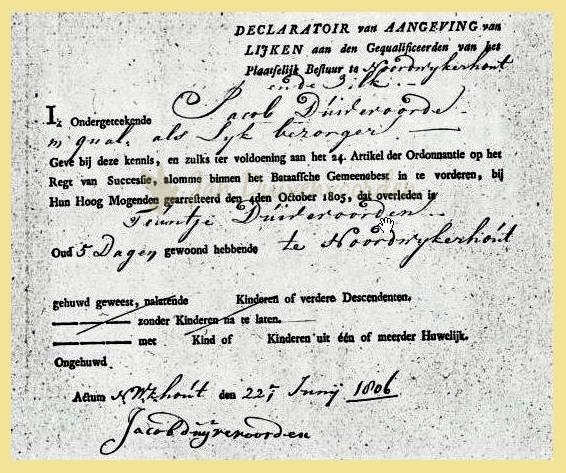 DECLARATOIR van AANGEVING van
LIJKEN aan den Gequalificeerden van het
Plaatselijk Bestuur te Noordwykerhout
ende Zilk.
Ik Ondergeteekende Jacob Duivevoorde
in qual. als Lyk bezorger
Geve bij deze kennis, en zulks ter voldoening aan het 24. Artikel der Ordonnantie op het
Regt van Successie, alomme binnen het Bataafsche Gemeenebest in te vorderen, bij
Hun Hoog Mogenden gearresteerd den 4den October 1805, dat overleden is
Teuntje Duivevoorden
Oud 5 Dagen gewoond hebbende te Noordwykerhout
gehuwd geweest, nalatende Kinderen of verdere Descendenten.
zonder Kinderen na te laten.
met Kind of Kinderen uit één of meerder Huwelijk.
Ongehuwd
Actum NWkhout den 22 Junij 1806
Jacob duyvevoorden